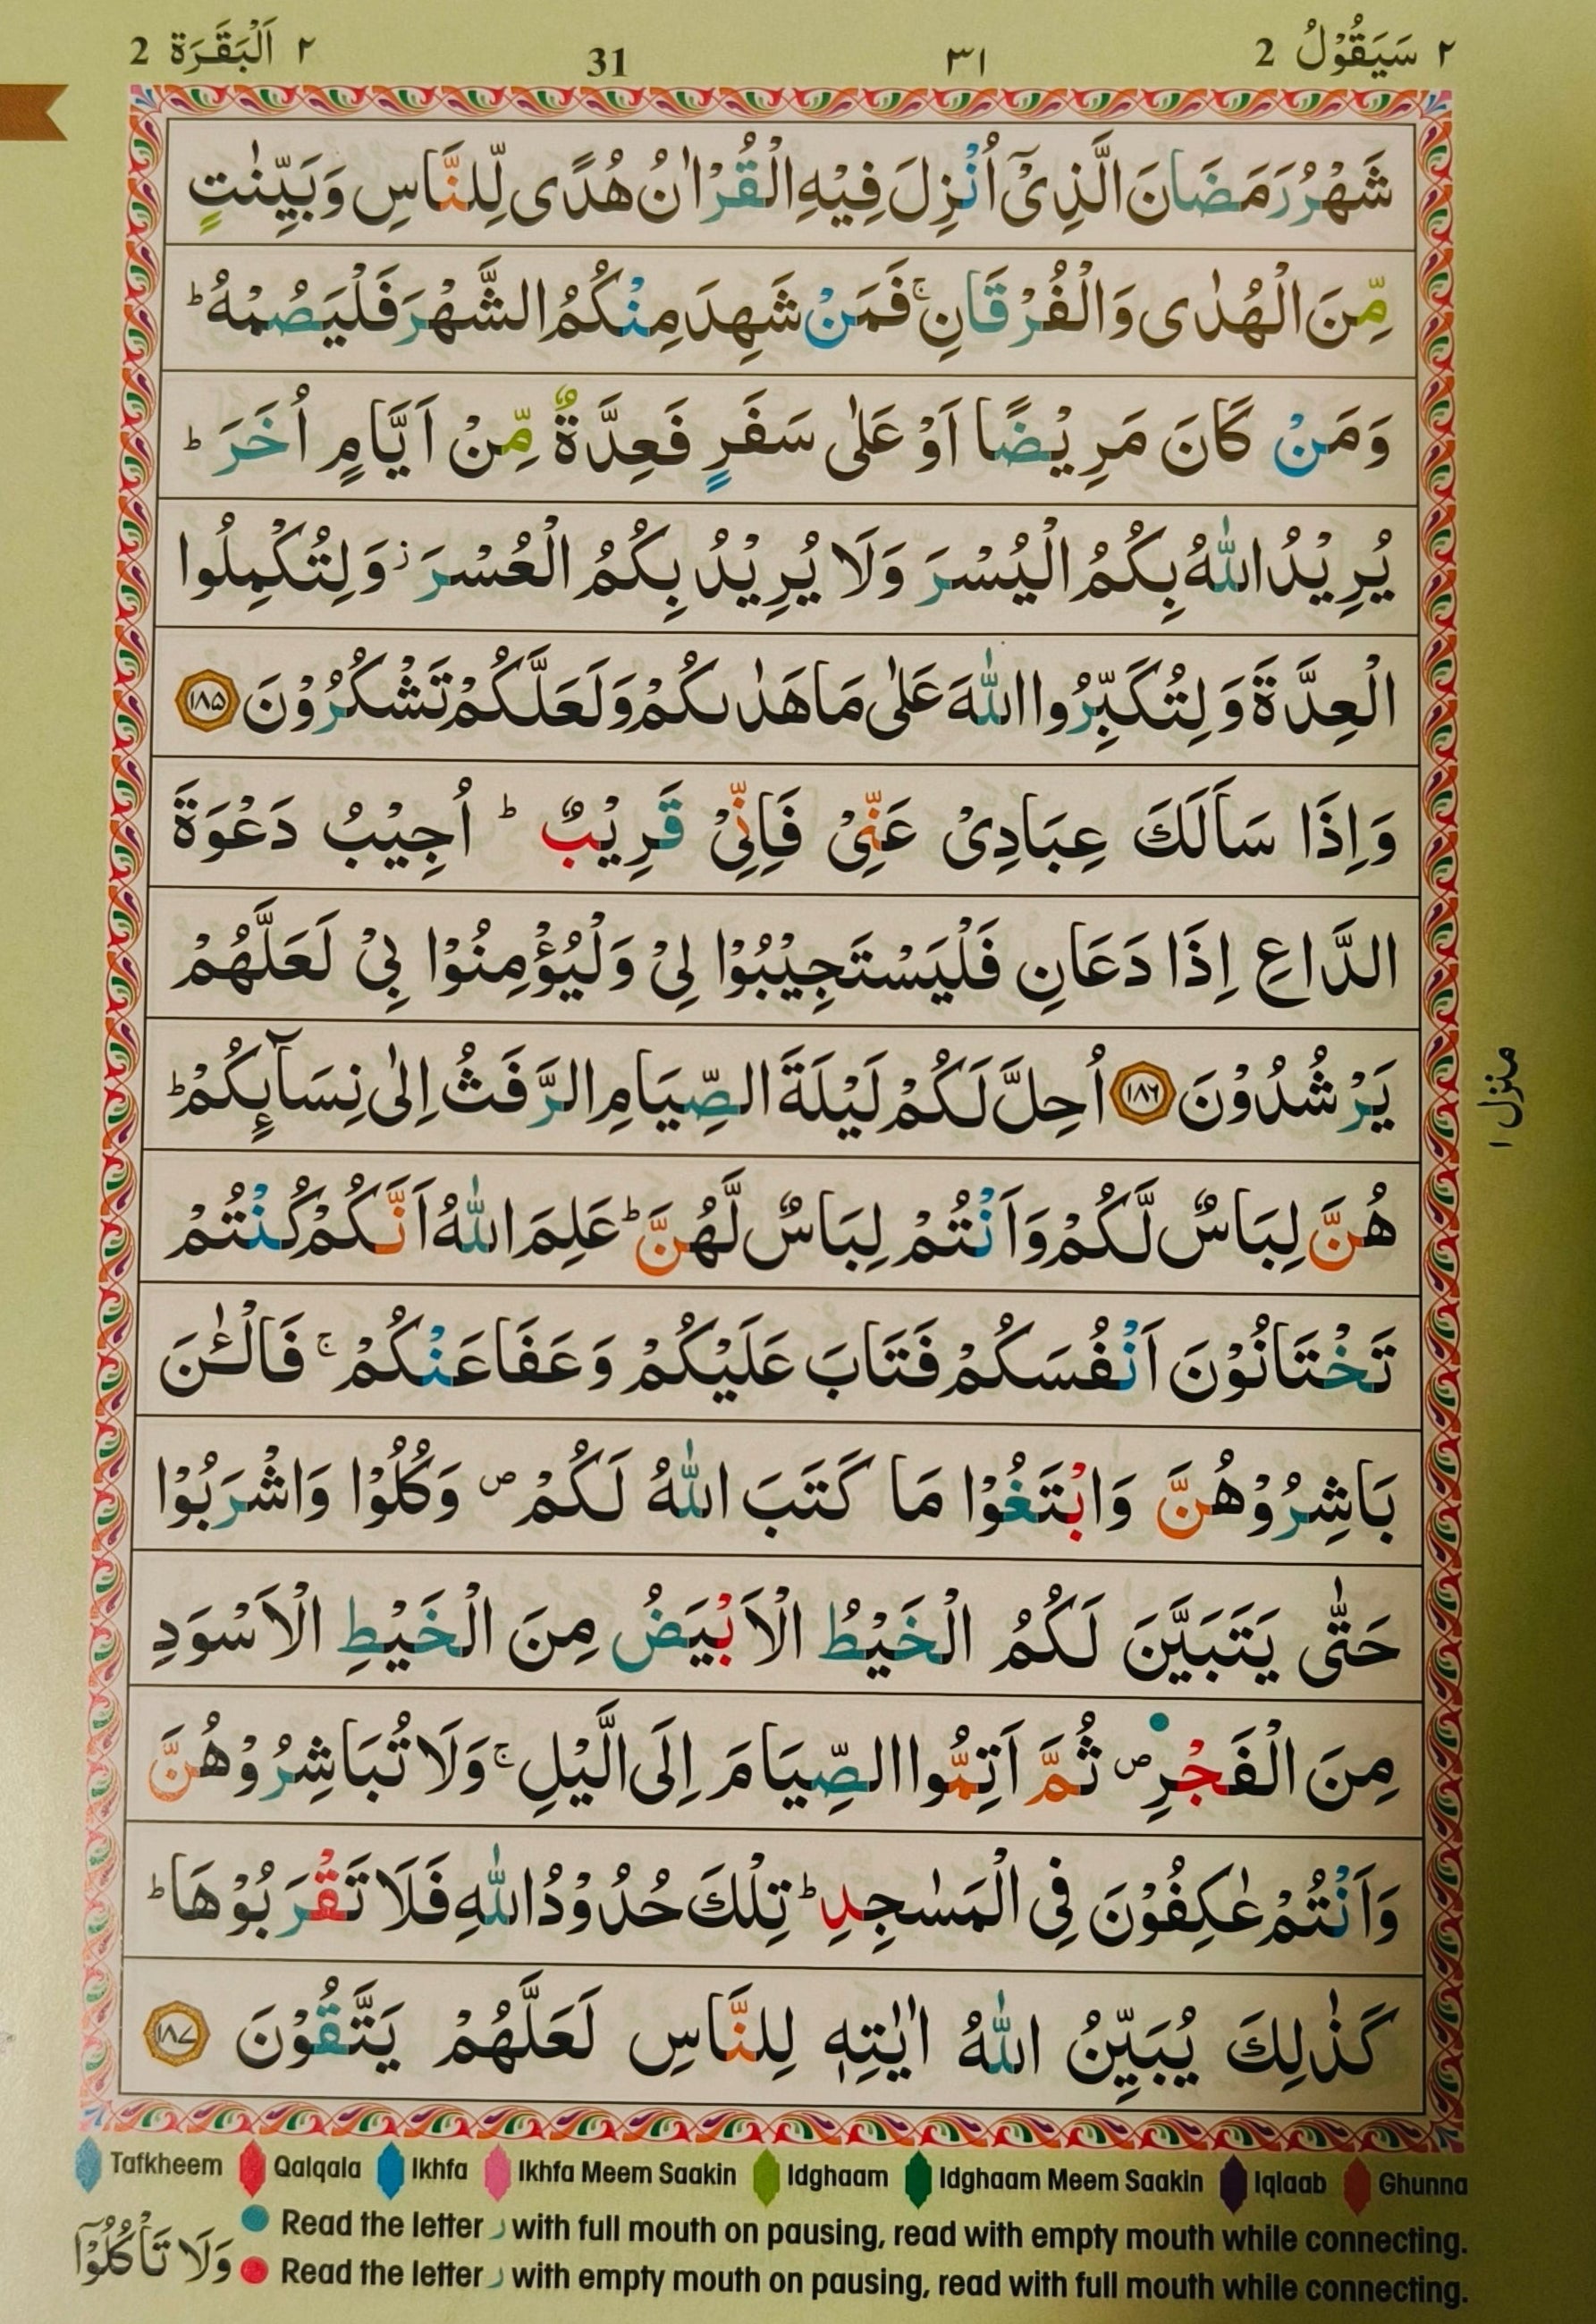 ٢ سَيَقُوْلُ 2 ٣١ 31 ٢ اَلْبَقَرَة 2
شَهْرُ رَمَضَانَ الَّذِىْٓ اُنْزِلَ فِيْهِ الْقُرْاٰنُ هُدًى لِّلنَّاسِ وَبَيِّنٰتٍ
مِّنَ الْهُدٰى وَالْفُرْقَانِ ۚ فَمَنْ شَهِدَ مِنْكُمُ الشَّهْرَ فَلْيَصُمْهُ ؕ
وَمَنْ كَانَ مَرِيْضًا اَوْ عَلٰى سَفَرٍ فَعِدَّةٌ مِّنْ اَيَّامٍ اُخَرَ ؕ
يُرِيْدُ اللّٰهُ بِكُمُ الْيُسْرَ وَلَا يُرِيْدُ بِكُمُ الْعُسْرَ ز وَلِتُكْمِلُوا
الْعِدَّةَ وَلِتُكَبِّرُوا اللّٰهَ عَلٰى مَا هَدٰىكُمْ وَلَعَلَّكُمْ تَشْكُرُوْنَ ١٨٥
وَاِذَا سَاَلَكَ عِبَادِىْ عَنِّىْ فَاِنِّىْ قَرِيْبٌ ؕ اُجِيْبُ دَعْوَةَ
الدَّاعِ اِذَا دَعَانِ فَلْيَسْتَجِيْبُوْا لِىْ وَلْيُؤْمِنُوْا بِىْ لَعَلَّهُمْ
يَرْشُدُوْنَ ١٨٦ اُحِلَّ لَكُمْ لَيْلَةَ الصِّيَامِ الرَّفَثُ اِلٰى نِسَآىِٕكُمْ ؕ
هُنَّ لِبَاسٌ لَّكُمْ وَاَنْتُمْ لِبَاسٌ لَّهُنَّ ؕ عَلِمَ اللّٰهُ اَنَّكُمْ كُنْتُمْ
تَخْتَانُوْنَ اَنْفُسَكُمْ فَتَابَ عَلَيْكُمْ وَعَفَا عَنْكُمْ ۚ فَالْـٰٔنَ
بَاشِرُوْهُنَّ وَابْتَغُوْا مَا كَتَبَ اللّٰهُ لَكُمْ ص وَكُلُوْا وَاشْرَبُوْا
حَتّٰى يَتَبَيَّنَ لَكُمُ الْخَيْطُ الْاَبْيَضُ مِنَ الْخَيْطِ الْاَسْوَدِ
مِنَ الْفَجْرِ ص ثُمَّ اَتِمُّوا الصِّيَامَ اِلَى الَّيْلِ ۚ وَلَا تُبَاشِرُوْهُنَّ
وَاَنْتُمْ عٰكِفُوْنَ فِى الْمَسٰجِدِ ؕ تِلْكَ حُدُوْدُ اللّٰهِ فَلَا تَقْرَبُوْهَا ؕ
كَذٰلِكَ يُبَيِّنُ اللّٰهُ اٰيٰتِهٖ لِلنَّاسِ لَعَلَّهُمْ يَتَّقُوْنَ ١٨٧
منزل ١
Tafkheem Qalqala Ikhfa Ikhfa Meem Saakin Idghaam Idghaam Meem Saakin Iqlaab Ghunna
Read the letter ر with full mouth on pausing, read with empty mouth while connecting.
Read the letter ر with empty mouth on pausing, read with full mouth while connecting.
وَلَا تَاْكُلُوْٓا